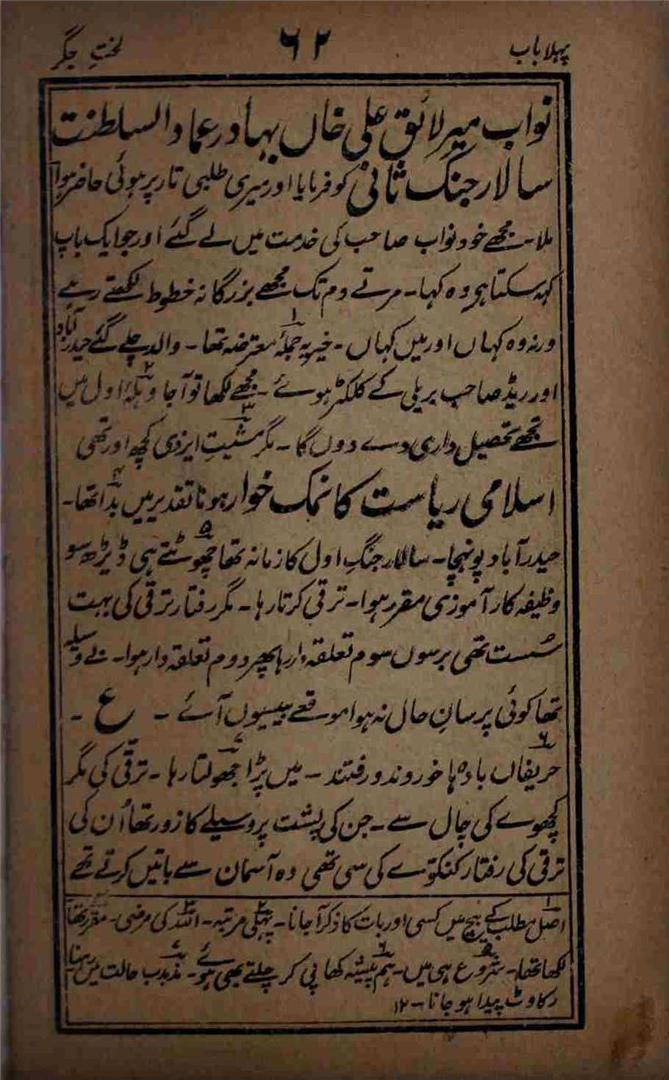 پہلا باب ۶۲ لختِ جگر
نواب میر لائق علی خاں بہادر عماد السلطنت
سالار جنگ ثانی کو فرمایا اور میری طلبی تار پر ہوئی حاضر ہوا
ملا۔ مجھے خود نواب صاحب کی خدمت میں لے گئے اور جو ایک باپ
کہہ سکتا ہی وہ کہا۔ مرتے دم تک مجھے بزرگانہ خطوط لکھتے رہے
ورنہ وہ کہاں اور میں کہاں۔ خیر یہ جملۂ معترضہ۱ تھا۔ والد چلے گئے حیدر آباد
اور ریڈ صاحب بریلی کے کلکٹر ہوئے۔ مجھے لکھا تو آجا وہلۂ۲ اول میں
تجھے تحصیل داری دے دوں گا۔ مگر مشیتِ۳ ایزدی کچھ اور تھی
اسلامی ریاست کا نمک خوار ہونا تقدیر میں بدا۴ تھا۔
حیدر آباد پونہچا۔ سالار جنگِ اول کا زمانہ تھا چھوٹتے۵ ہی ڈیڑھ سو
وظیفہ کار آموزی مقرر ہوا۔ ترقی کرتا رہا۔ مگر رفتار ترقی کی بہت
سُست تھی برسوں سوم تعلقہ دار رہا پھر دوم تعلقہ دار ہوا۔ بے وسیلہ
تھا کوئی پرسانِ حال نہ ہوا موقعے بیسیوں آئے ۔ ع ۔
حریفاں۶ بادہ ہا خوردند و رفتند ۔ میں پڑا جھولتا۷ رہا۔ ترقی کی مگر
کچھوے کی چال سے۔ جن کی پشت پر وسیلے کا زور تھا اُن کی
ترقی کی رفتار کنکوّے کی سی تھی وہ آسمان سے باتیں کرتے تھے
۱ اصل مطلب کے بیچ میں کسی اور بات کا ذکر آجانا۔ ۲ پہلی مرتبہ۔ ۳ اللہ کی مرضی۔ ۴ مقرر تھا
لکھا تھا۔ ۵ شروع ہی میں۔ ۶ ہم پیشہ کھا پی کر چلتے بھی ہوئے۔ ۷ مذبذب حالت میں رہنا
رکاوٹ پیدا ہو جانا۔ ۱۲